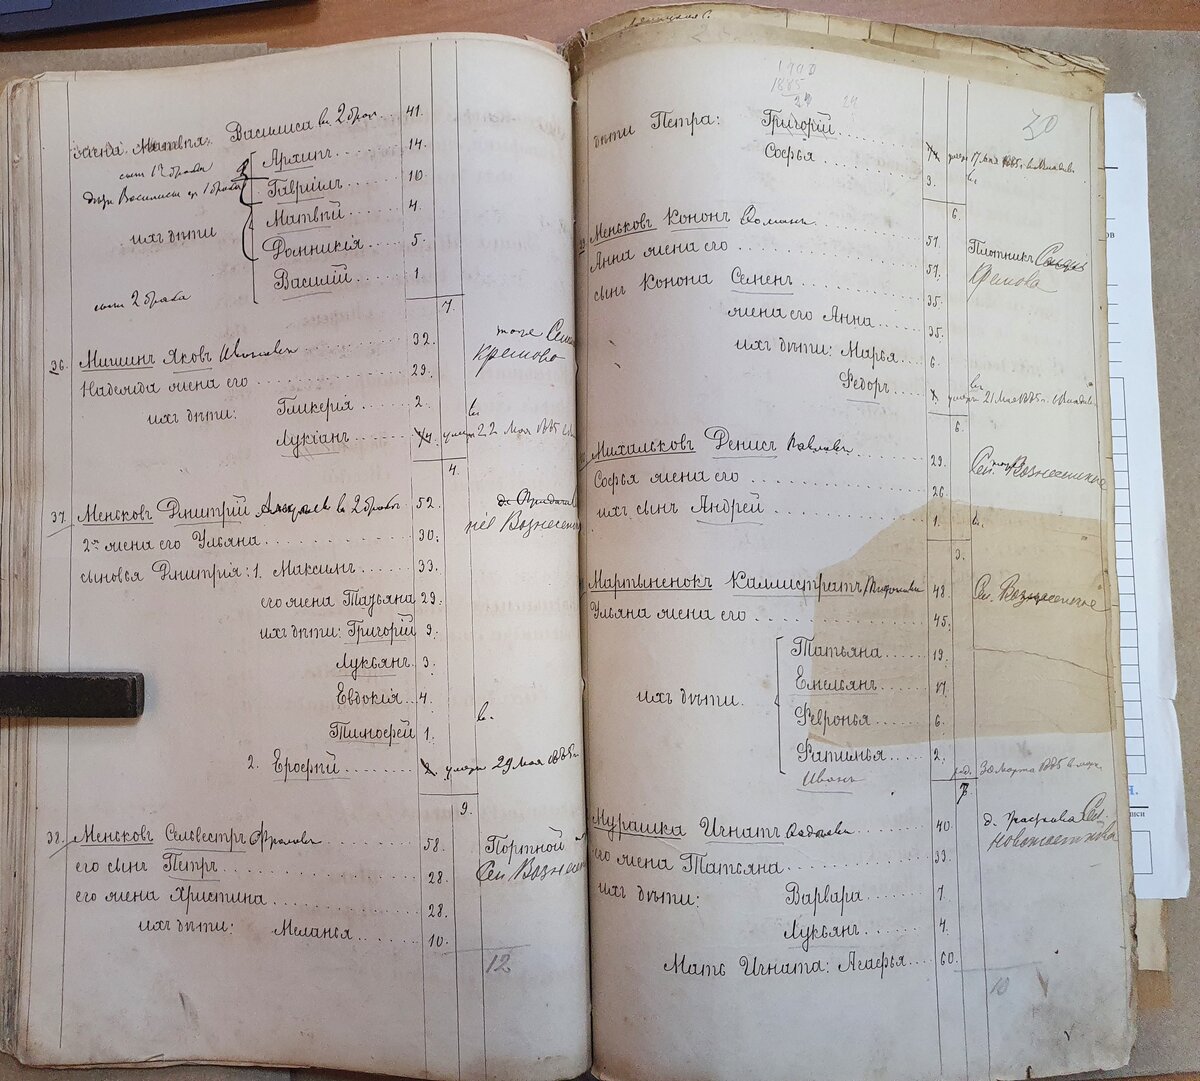 жена Матвѣя: Василиса въ 2 бракѣ 41.
сынъ 1го брака Архипъ 14.
дѣти Василисы отъ 1 брака Гаврiилъ 10.
Матвѣй 4.
ихъ дѣти Домникiя 5.
сынъ 2 брака Василiй 1.
7.
36. Мишинъ Яковъ Ивановъ 32.
тоже Сел
Кремово
Надежда жена его 29.
ихъ дѣти: Гликерiя 2.
Лукiанъ умеръ 22 Мая 1885
4.
37. Меньковъ Димитрiй въ 2 бракѣ 52
Вознесен
2ая жена его Ульяна 30.
сыновья Димитрiя: 1. Максимъ 33.
его жена Татьяна 29.
ихъ дѣти: Григорiй 9.
Лукьянъ 3.
Евдокiя 4.
Тимофей 1.
2. Ерофѣй умеръ 29 Мая 1885
9.
38. Меньковъ Сельвестръ Фроловъ 58.
Портной
Сел Вознесен
его сынъ Петръ 28.
его жена Христина 28.
ихъ дѣти: Меланья 10.
12
1900
1885
24 24
30
дѣти Петра: Григорiй
Софья умеръ 17 Мая 1885
3.
6.
Меньковъ Кононъ 51.
Плотникъ
Кремова
Анна жена его 51.
сынъ Конона Семенъ 35.
жена его Анна 35.
ихъ дѣти: Марья 6.
Федоръ умеръ 21 Мая 1885 г.
6.
Михальковъ Денисъ Павловъ 29.
Сел. Вознесенское
Софья жена его 26.
ихъ сынъ Андрей 1.
3.
Мартыненокъ Каллистратъ 48.
Сел. Вознесенское
Ульяна жена его 45.
Татьяна 19.
Емельянъ 17.
ихъ дѣти. Февронья 6.
Фатинья 2.
Иванъ род. 30 Марта 1885
7.
Мурашка Игнатъ 40.
д.
его жена Татьяна 39.
ихъ дѣти: Варвара 7.
Лукьянъ 4.
Мать Игната: Агафья 60.
10